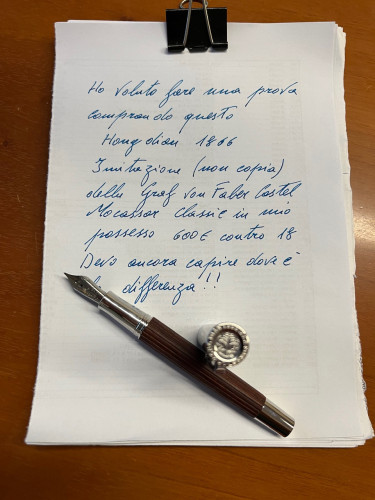 Ho voluto fare una prova
comprando questo
Hongdian 1866
Imitazione (non copia)
della Graf von Faber Castel
Macassar Classic in mio
possesso 600€ contro 18
Devo ancora capire dov'è
la differenza!!